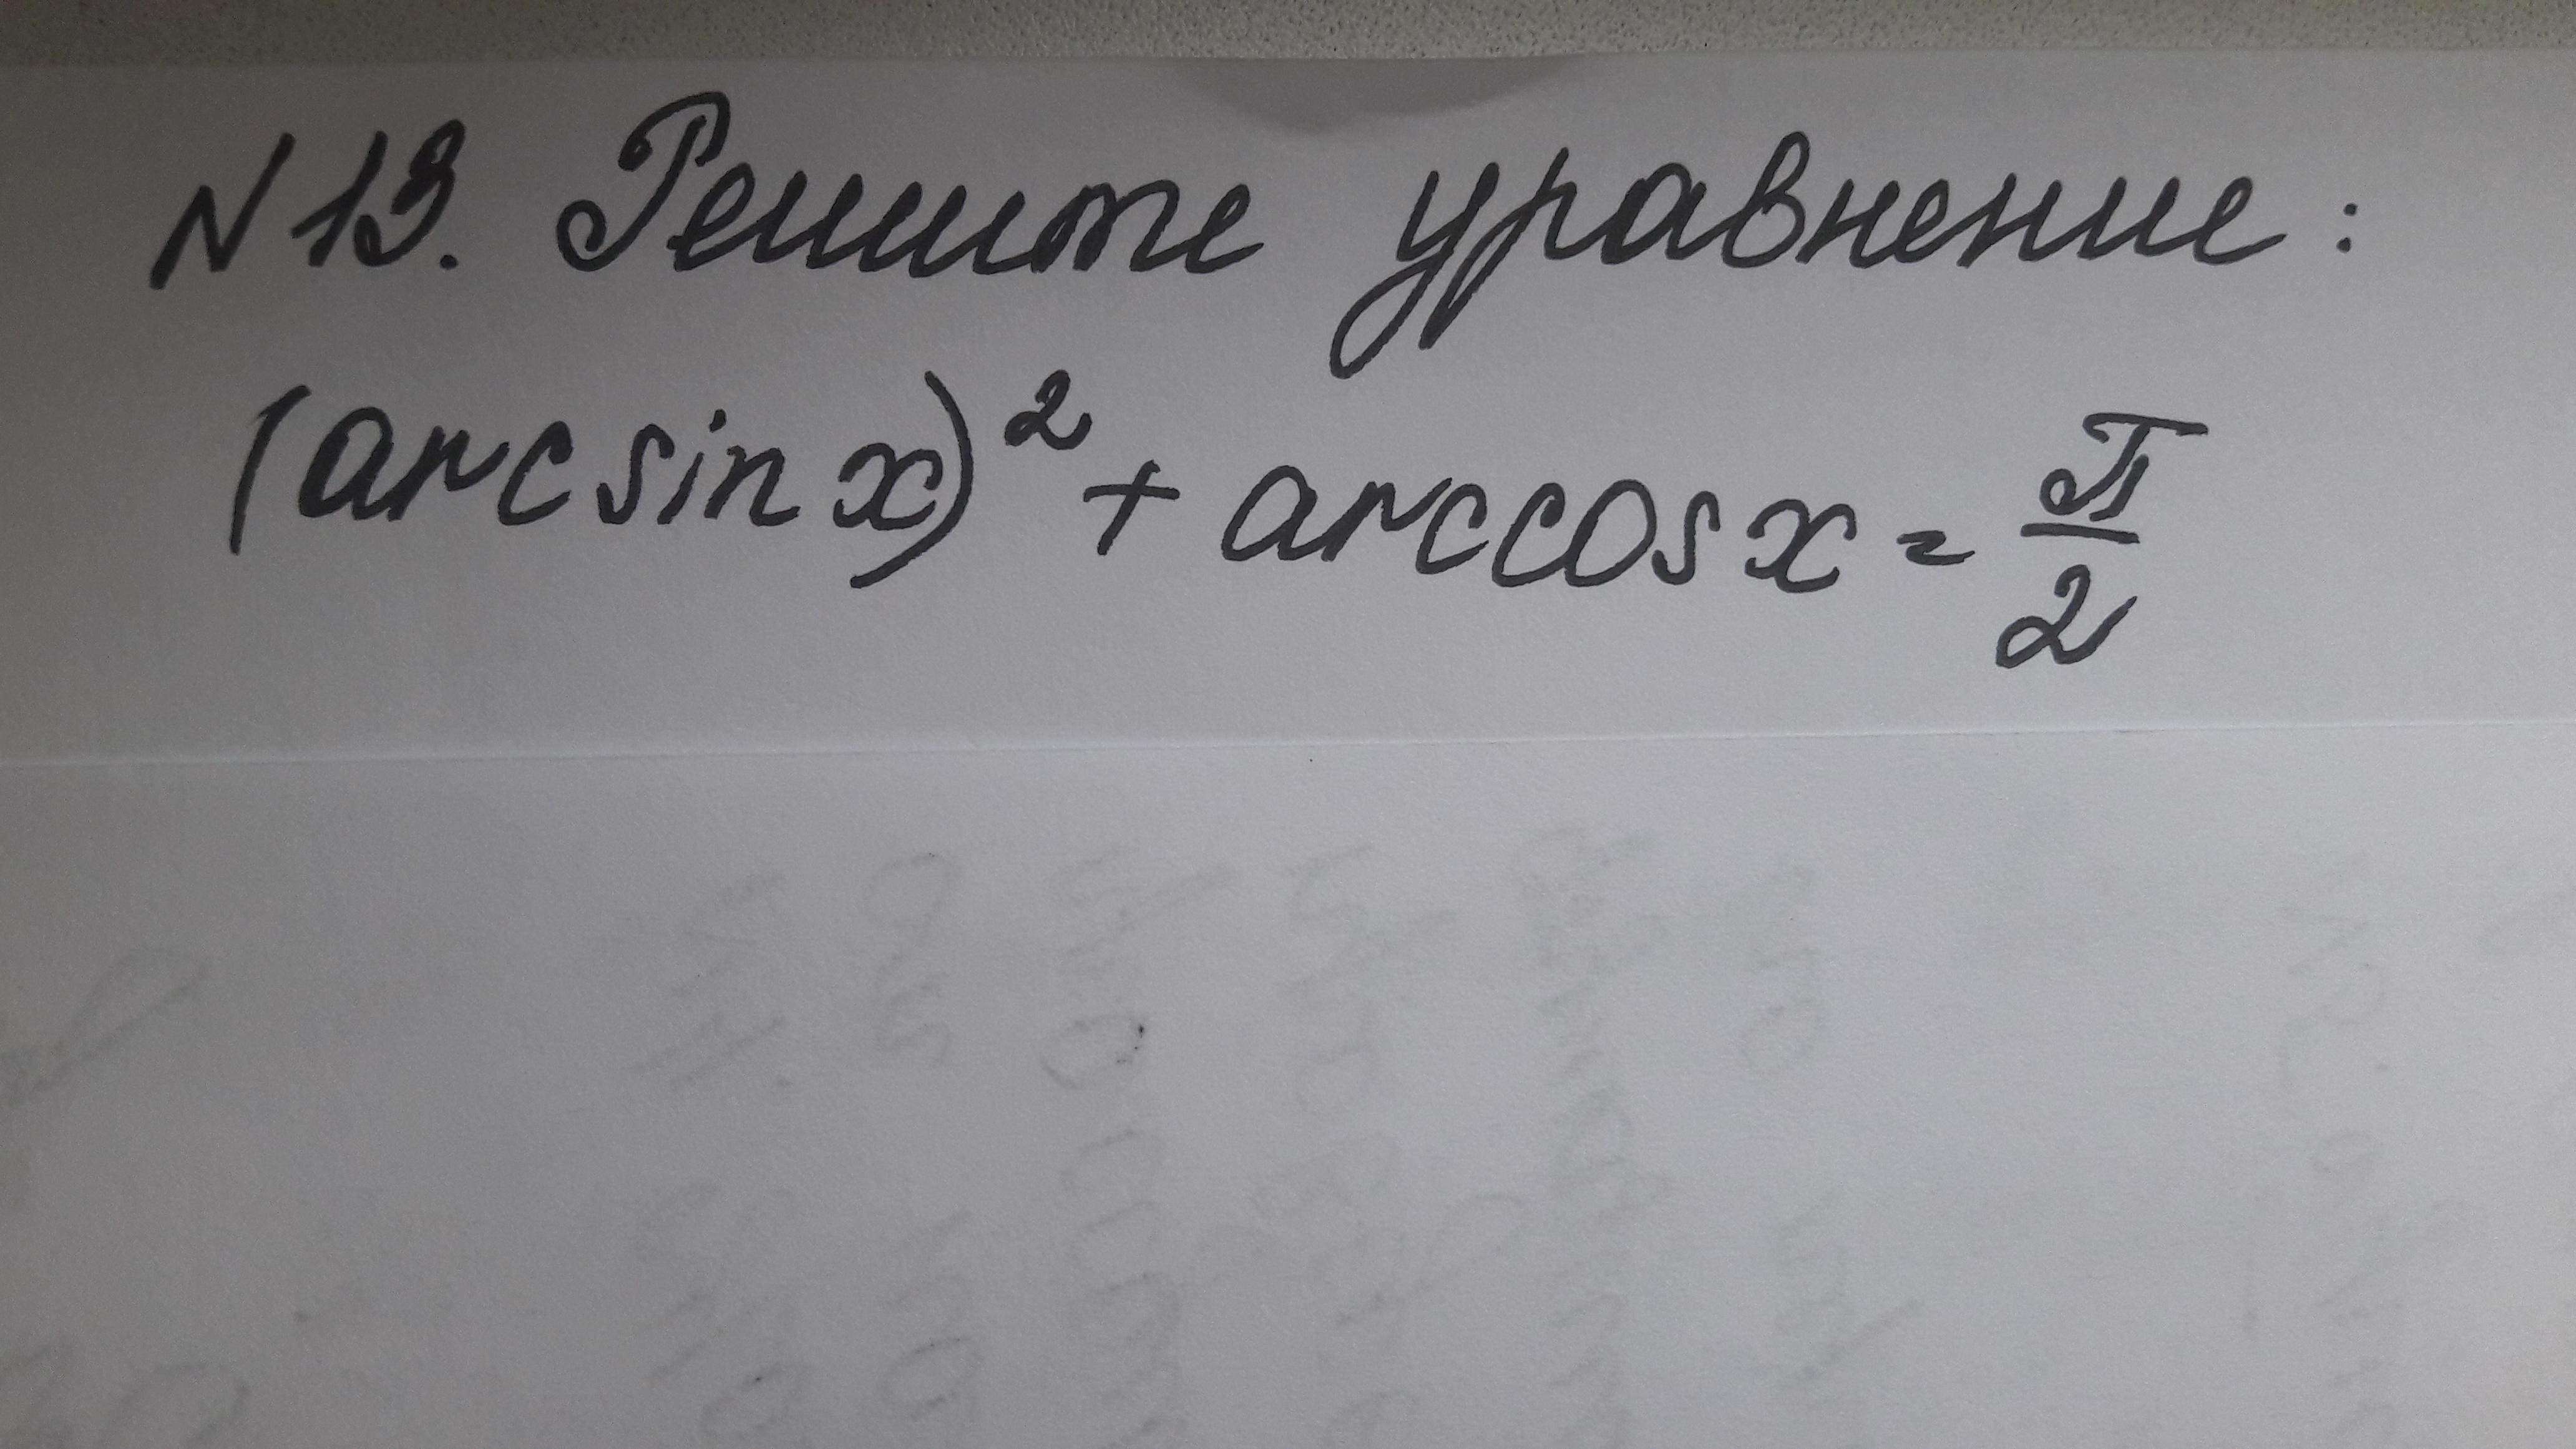 N 13. Решите уравнение:
(arcsin x)² + arccos x = π/2